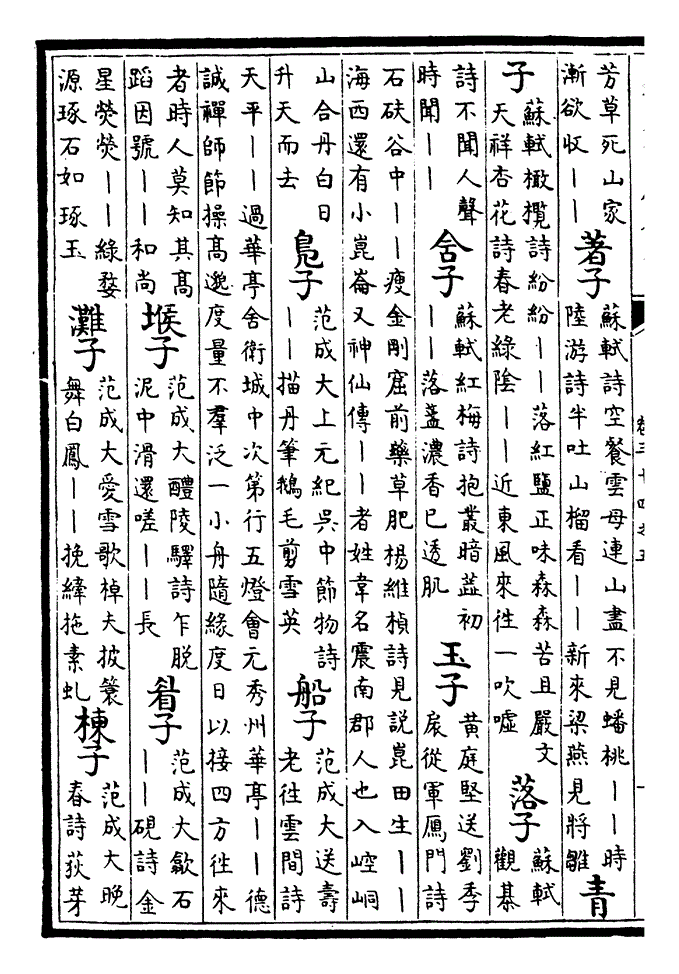 芳草死山家
漸欲收丨丨
著子
蘇軾詩空餐雲母連山盡不見蟠桃丨丨時
陸游詩半吐山榴看丨丨新來梁燕見將雛
青
子
蘇軾橄欖詩紛紛丨丨落紅鹽正味森森苦且嚴文
天祥杏花詩春老綠陰丨丨近東風來往一吹噓
落子
蘇軾
觀棊
詩不聞人聲
時聞丨丨
含子
蘇軾紅梅詩抱叢暗蕋初
丨丨落盞濃香已透肌
玉子
黄庭堅送劉季
扆從軍鴈門詩
石砆谷中丨丨瘦金剛窟前藥草肥楊維楨詩見説崑田生丨丨
海西還有小崑崙又神仙傳丨丨者姓韋名震南郡人也入崆峒
山合丹白日
升天而去
鳬子
范成大上元紀吳中節物詩
丨丨描丹筆鵝毛剪雪英
船子
范成大送壽
老往雲間詩
天平丨丨過華亭舍衛城中次第行五燈會元秀州華亭丨丨德
誠禪師節操髙邈度量不羣泛一小舟隨緣度日以接四方往來
者時人莫知其髙
蹈因號丨丨和尚
堠子
范成大醴陵驛詩乍脱
泥中滑還嗟丨丨長
眉子
范成大歙石
丨丨硯詩金
星熒熒丨丨綠婺
源琢石如琢玉
灘子
范成大愛雪歌棹夫披簑
舞白鳳丨丨挽繂拖素虬
楝子
范成大晚
春詩荻芽